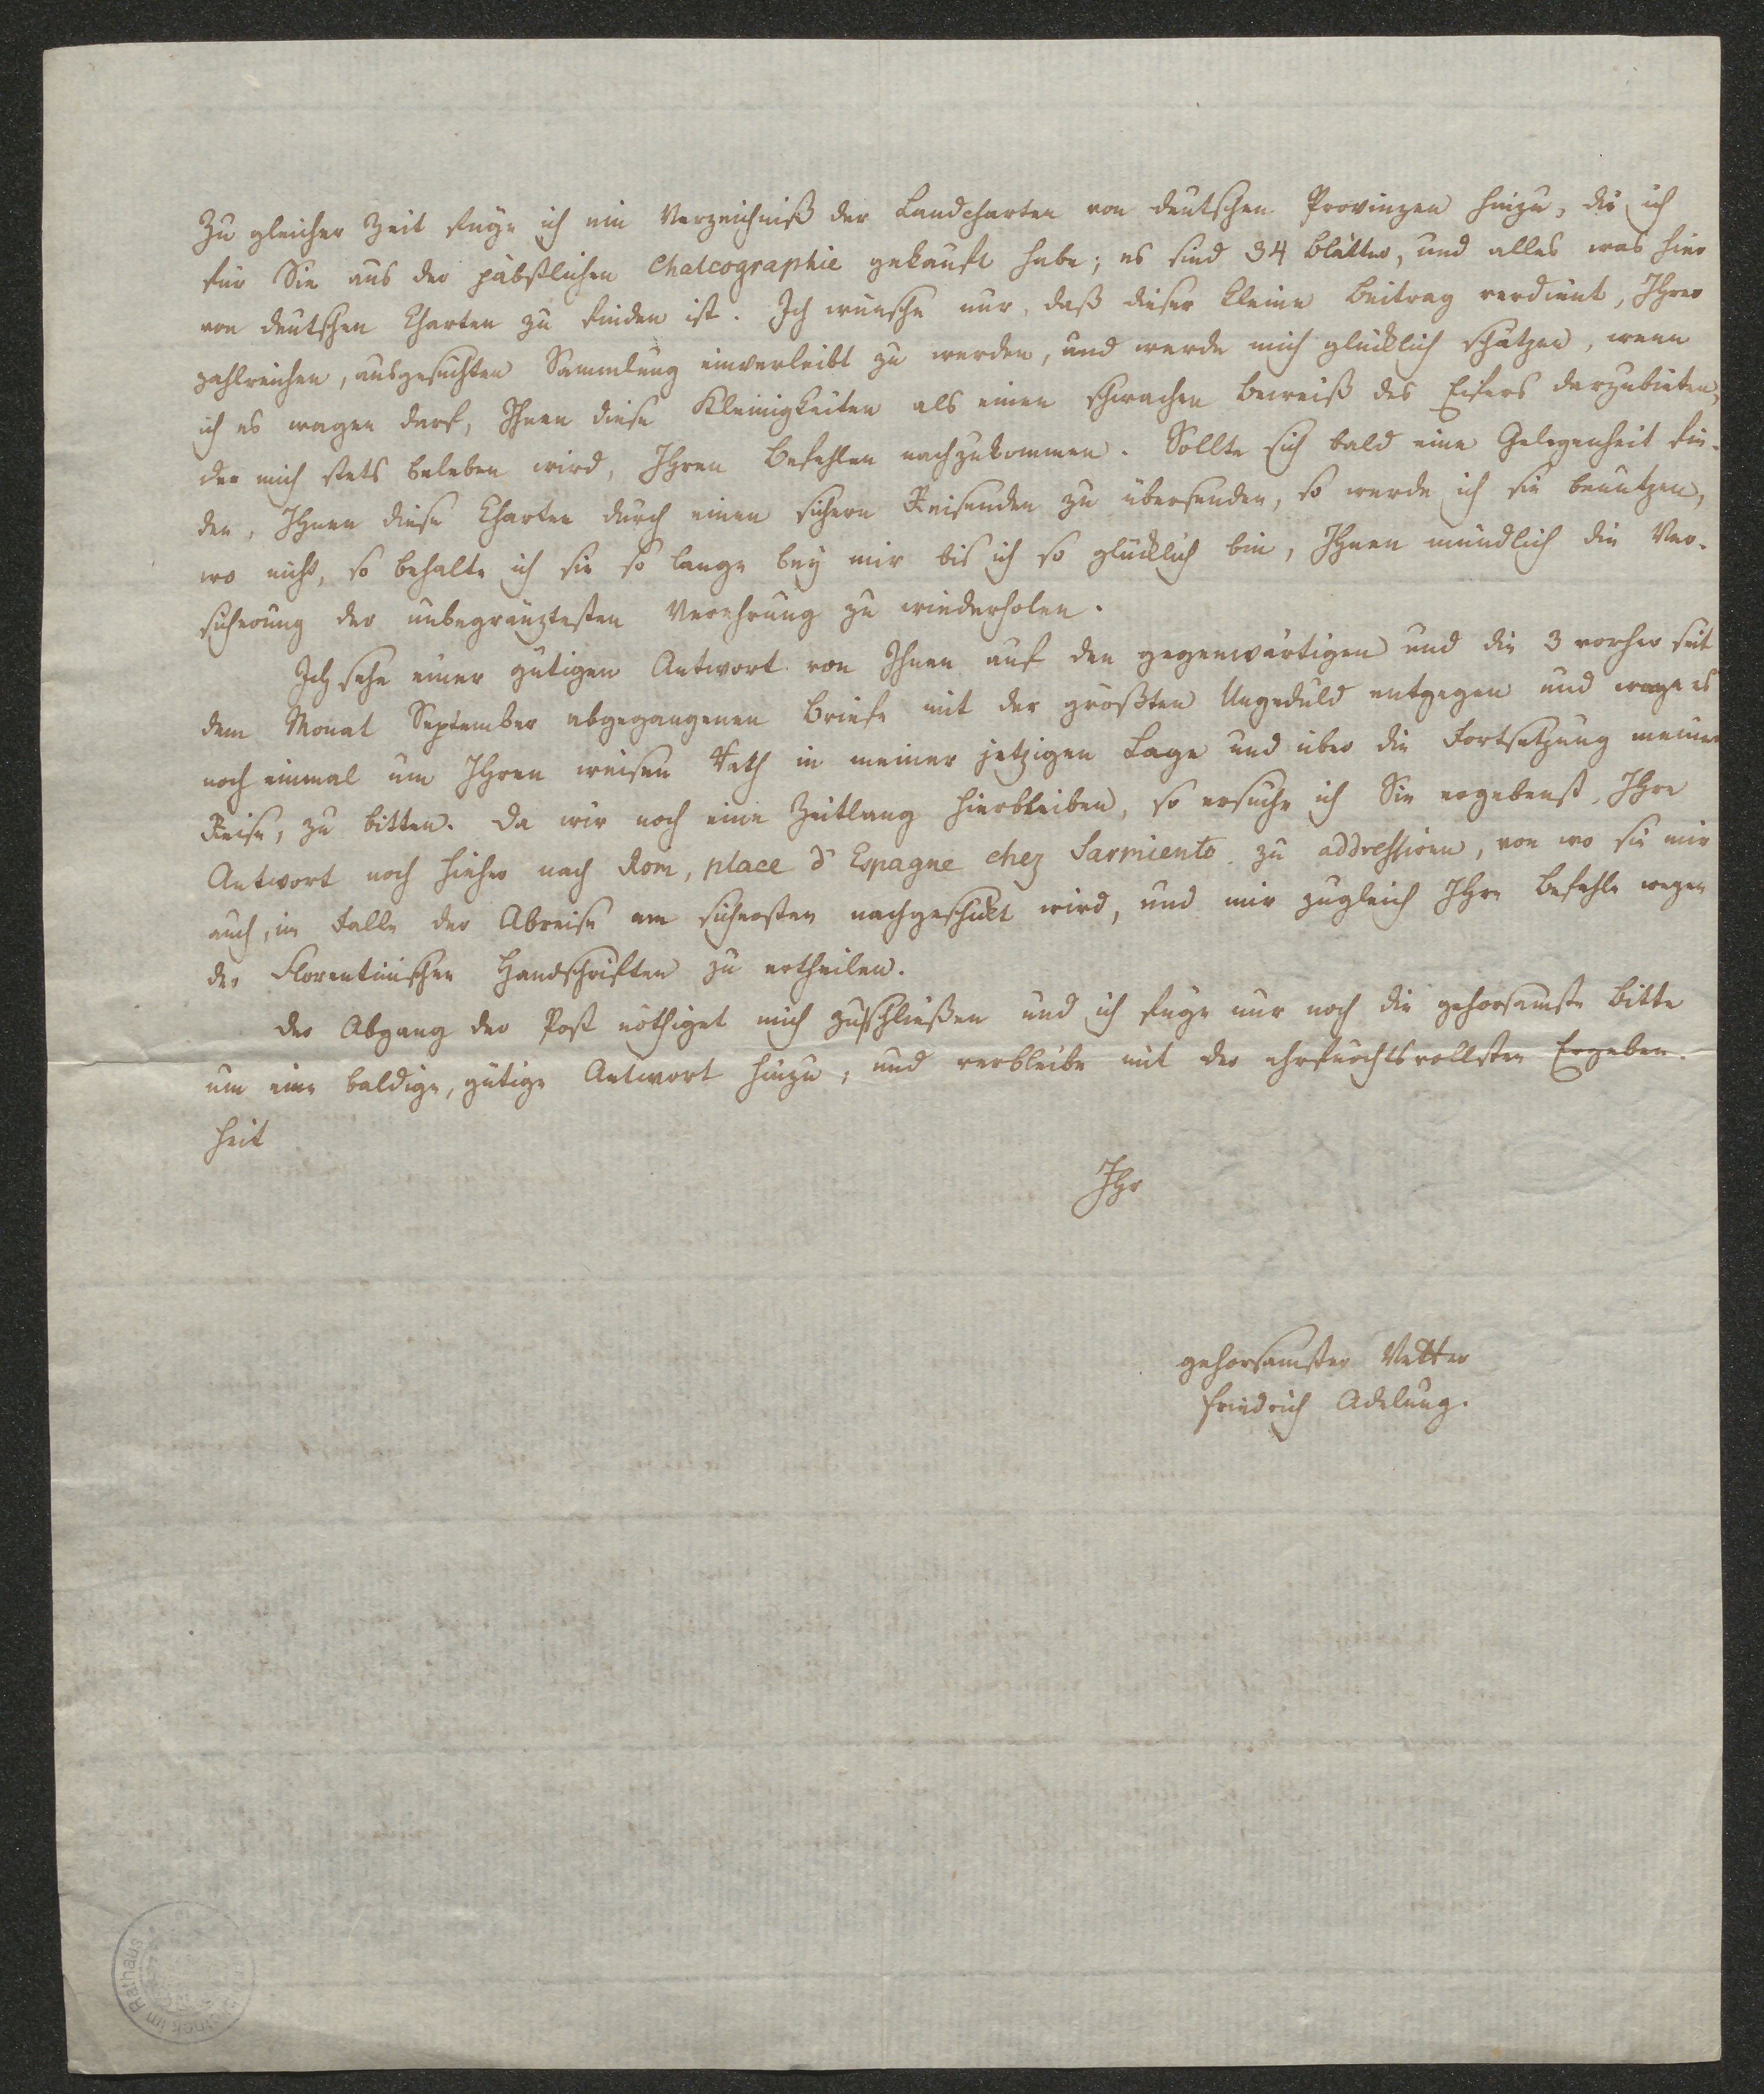 Zu gleicher Zeit füge ich ein Verzeichniß der Landcharten von deutschen Provinzen hinzu, die ich
für Sie aus der päbstlichen Chalcographie gekauft habe; es sind 34 Blätter, und alles was hier
von deutschen Charten zu finden ist. Ich wünsche nur, daß dieser kleine Beitrag verdient, Ihrer
zahlreichen, ausgesuchten Sammlung einverleibt zu werden, und werde mich glücklich schätzen, wenn
ich es wagen darf, Ihnen diese Kleinigkeiten als einen schwachen Beweiß des Eifers darzubieten,
der mich stets beleben wird, Ihren Befehlen nachzukommen. Sollte sich bald eine Gelegenheit fin-
den, Ihnen diese Charten durch einen sichern Reisenden zu übersenden, so werde ich sie benutzen,
wo nicht, so behalte ich sie so lange bey mir bis ich so glücklich bin, Ihnen mündlich die Ver-
sicherung der unbegränztesten Verehrung zu wiederholen.
Ich sehe einer gütigen Antwort von Ihnen auf den gegenwärtigen und die 3 vorher seit
dem Monat September abgegangenen Briefe mit der größten Ungeduld entgegen und wage es
noch einmal um Ihren weisen Rath in meiner jetzigen Lage und über die Fortsetzung meiner
Reise, zu bitten. Da wir noch eine Zeitlang hierbleiben, so ersuche ich Sie ergebenst, Ihre
Antwort noch hieher nach Rom, place d'Espagne chez Sarmiento zu addressiren, von wo sie mir
auch, im Falle der Abreise am sichersten nachgeschickt wird, und mir zugleich Ihre Befehle wegen
der Florentinischen Handschriften zu ertheilen.
Der Abgang der Post nöthiget mich zu schließen und ich füge nur noch die gehorsamste Bitte
um eine baldige, gütige Antwort hinzu, und verbleibe mit der ehrfurchtsvollsten Ergeben-
heit
Ihr
gehorsamster Vetter
Friedrich Adelung.
im Rathaus